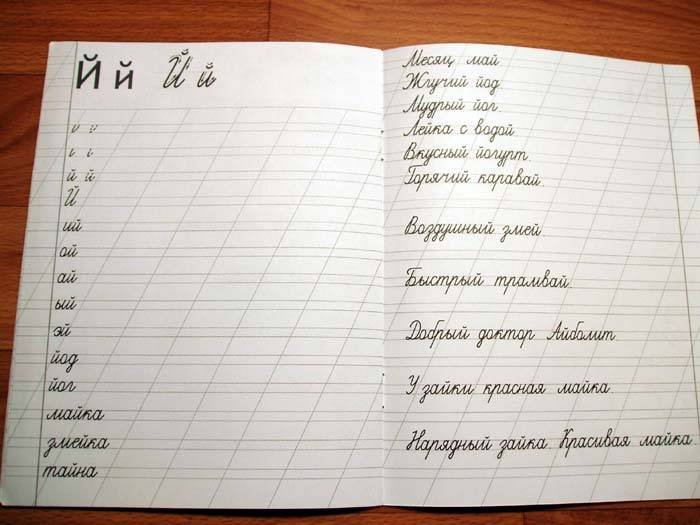 Й й Й й
и и
ι ι
й й
Й
ий
ой
ай
ый
эй
йод
йог
майка
змейка
тайна
Месяц май.
Жгучий йод.
Мудрый йог.
Лейка с водой.
Вкусный йогурт.
Горячий каравай.
Воздушный змей.
Быстрый трамвай.
Добрый доктор Айболит.
У зайки красная майка.
Нарядный зайка. Красивая майка.